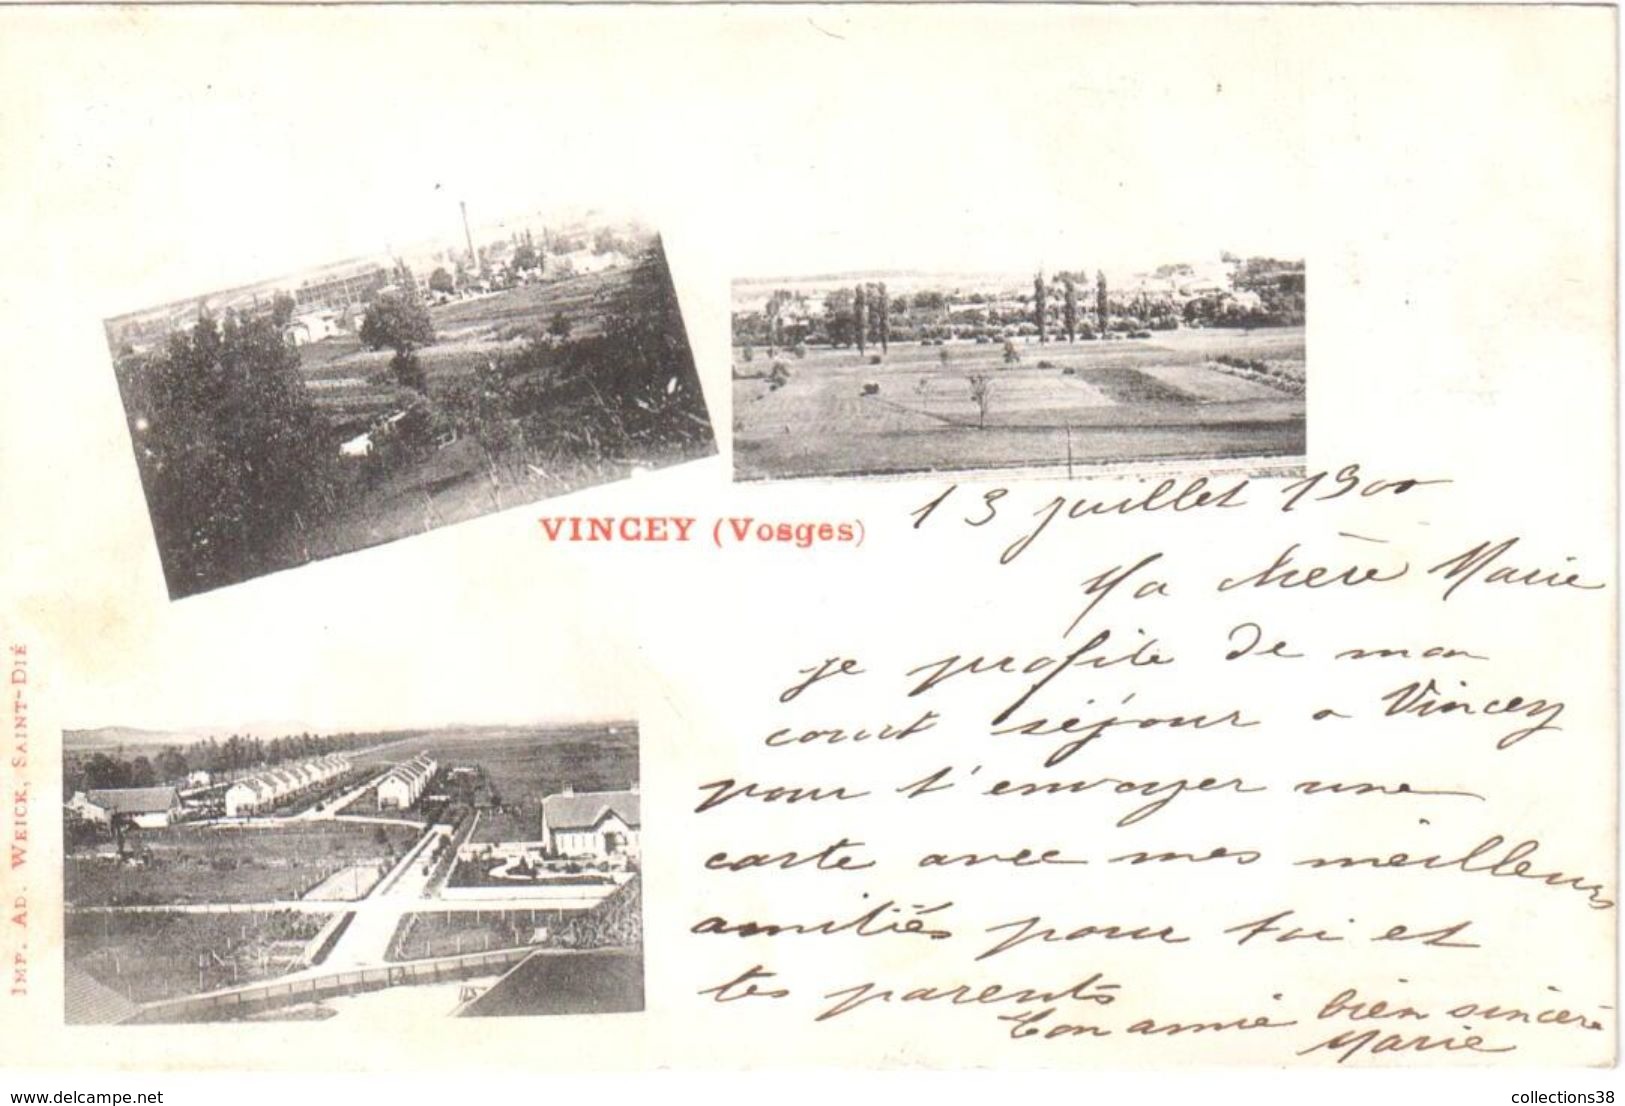 VINCEY (Vosges)
13 juillet 1900
Ma chère Marie
je profite de mon
court séjour a Vincey
pour t'envoyer une
carte avec mes meilleurs
amitiés pour toi et
tes parents
Ton amie bien sincère
Marie
IMP. AD. WEICK, SAINT-DIÉ
www.delcampe.net
collections38